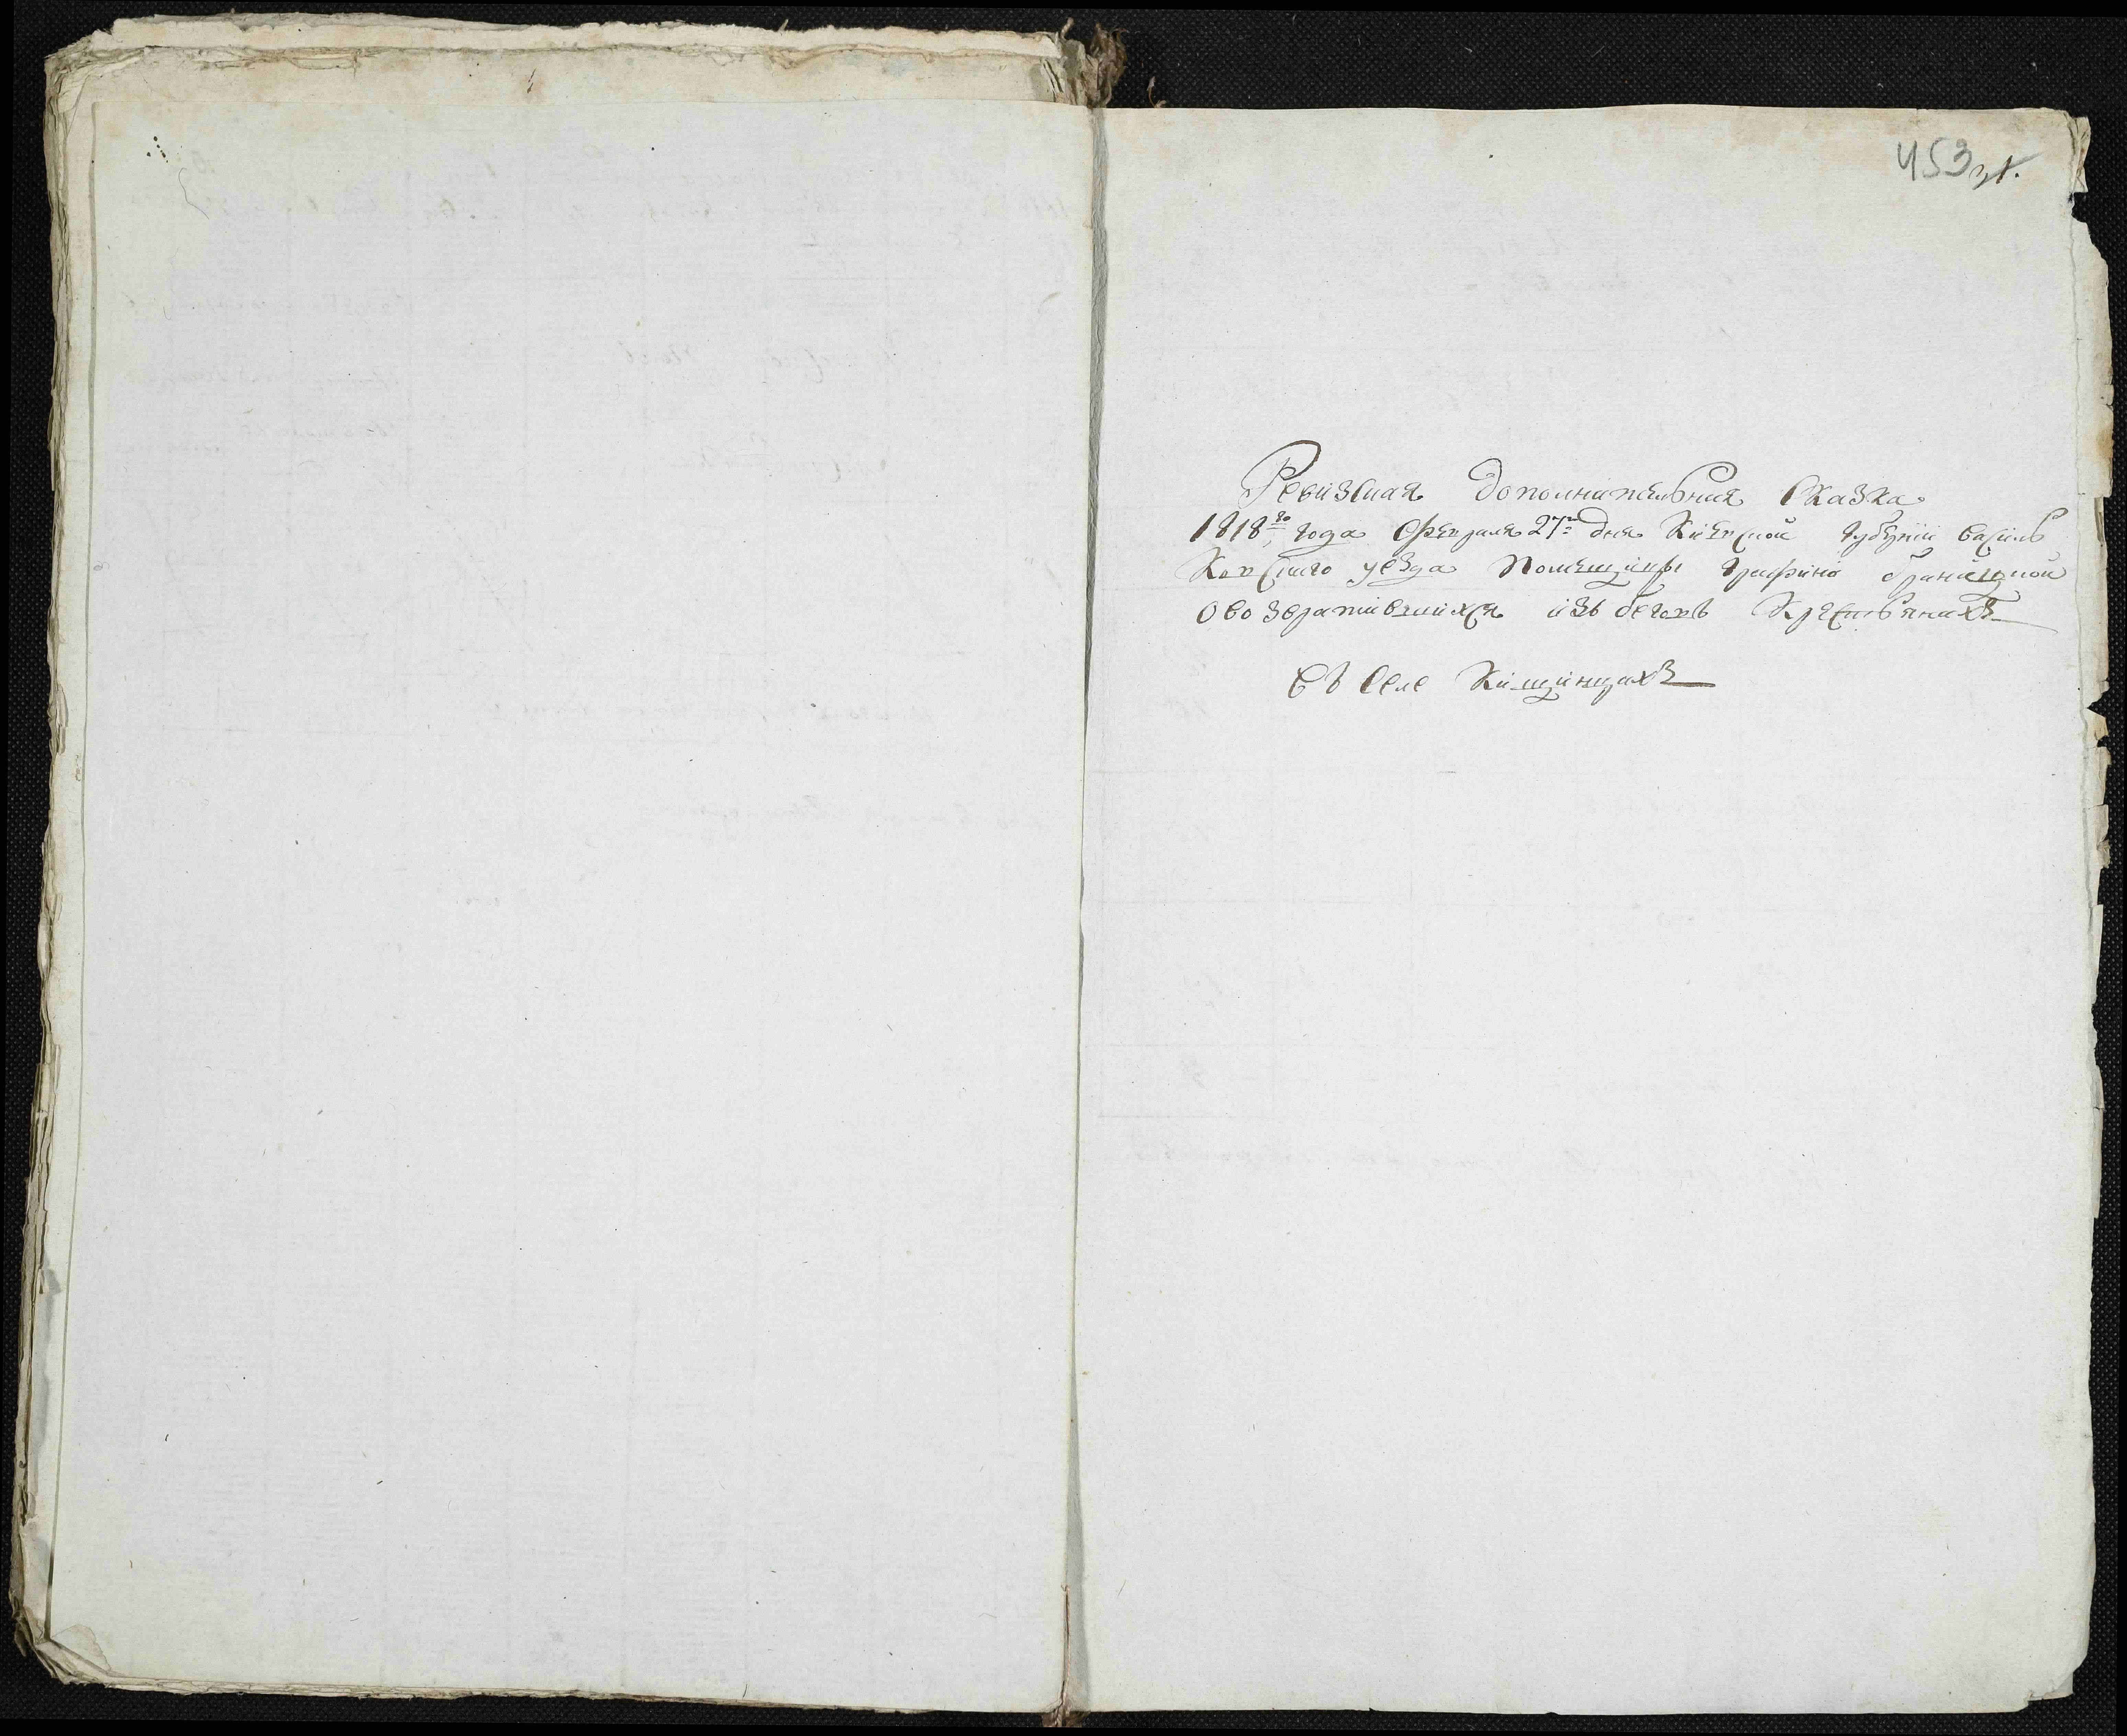 453
Ревизская дополнительная сказка
1818го года Февраля 27го дня Киевской губернии василь
Ковского уезда Помещицы графини браницкой
Овозвратившихся изъ беговъ Крестьянахъ
Въ Селе Кищинцахъ